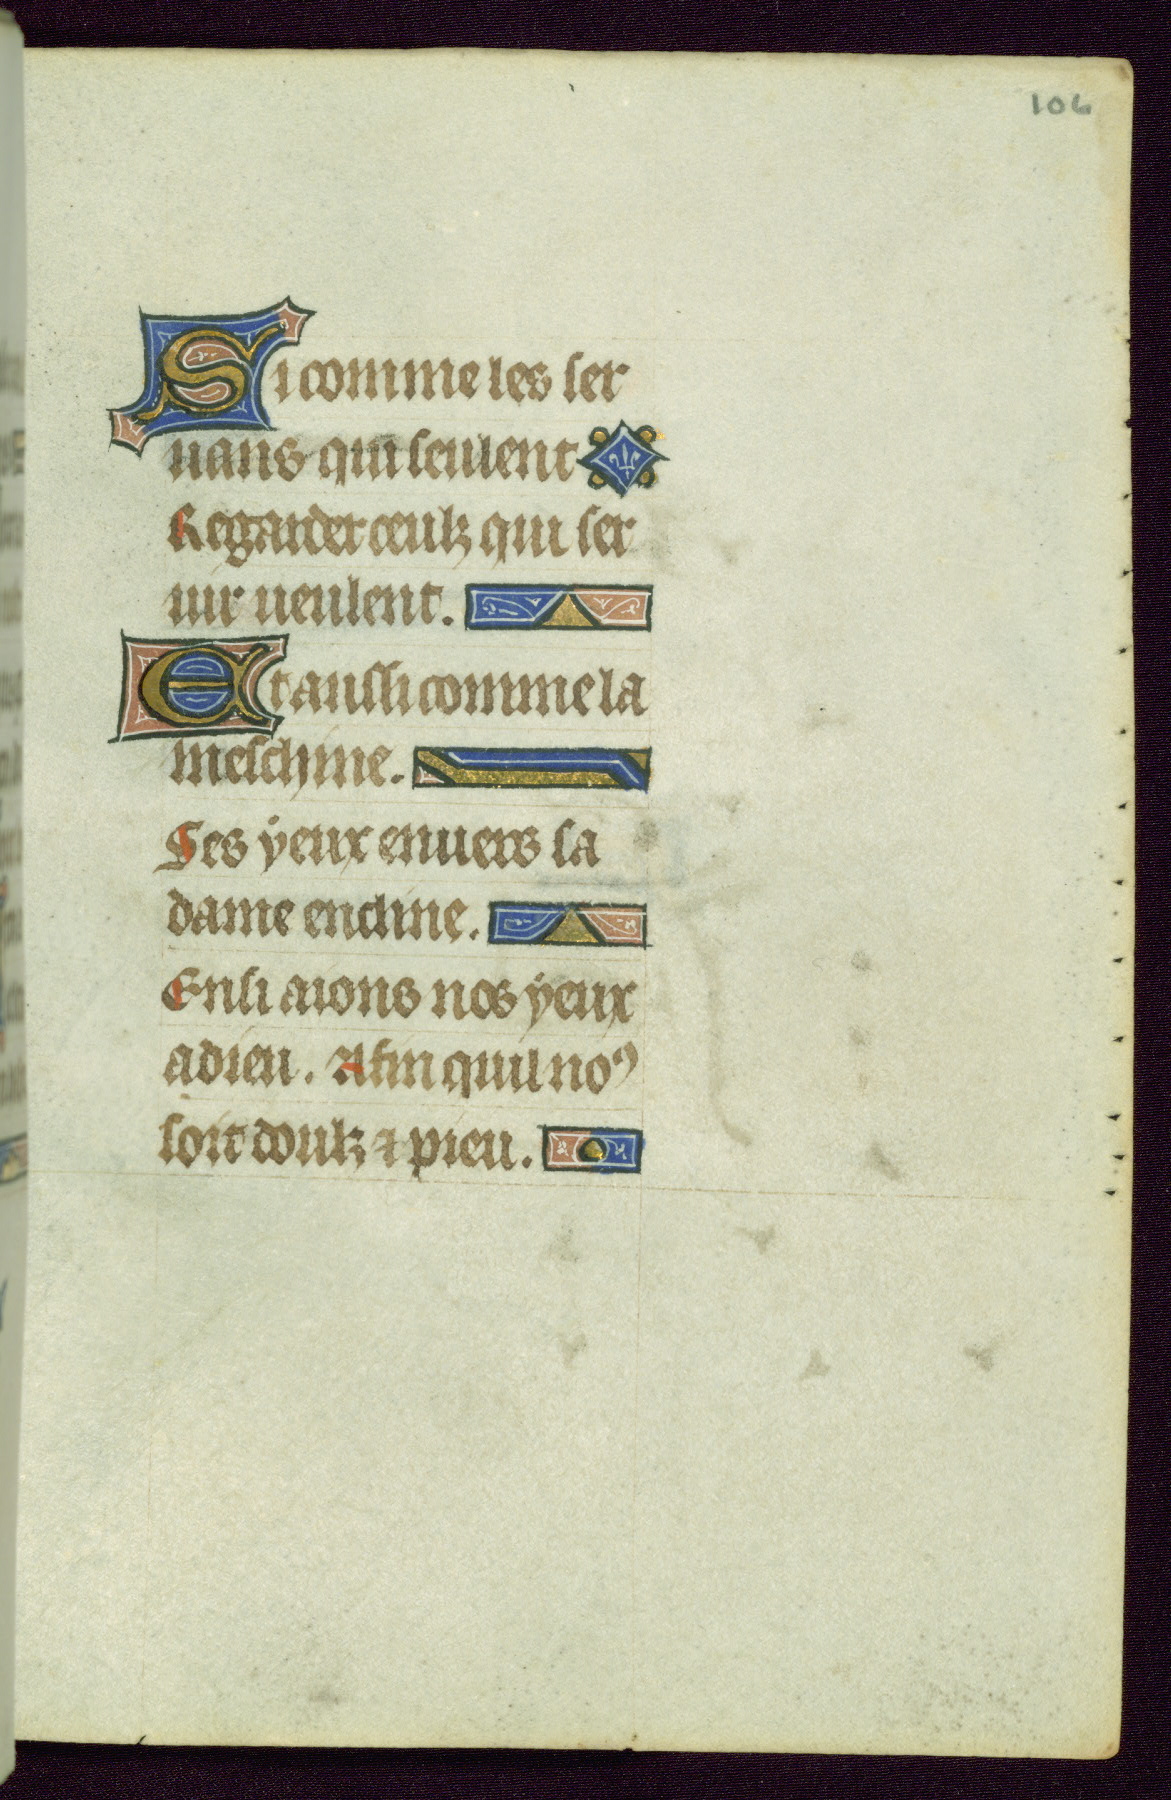 106
Si comme les ser
uans qui seulent
Regarder ceulz qui ser
uir ueulent.
Et aussi comme la
meschine.
Ses ẏeux enuers sa
dame encline.
Ensi aions nos ẏeux
a dieu. Afin quil noꝰ
soit doulz ⁊ pieu.